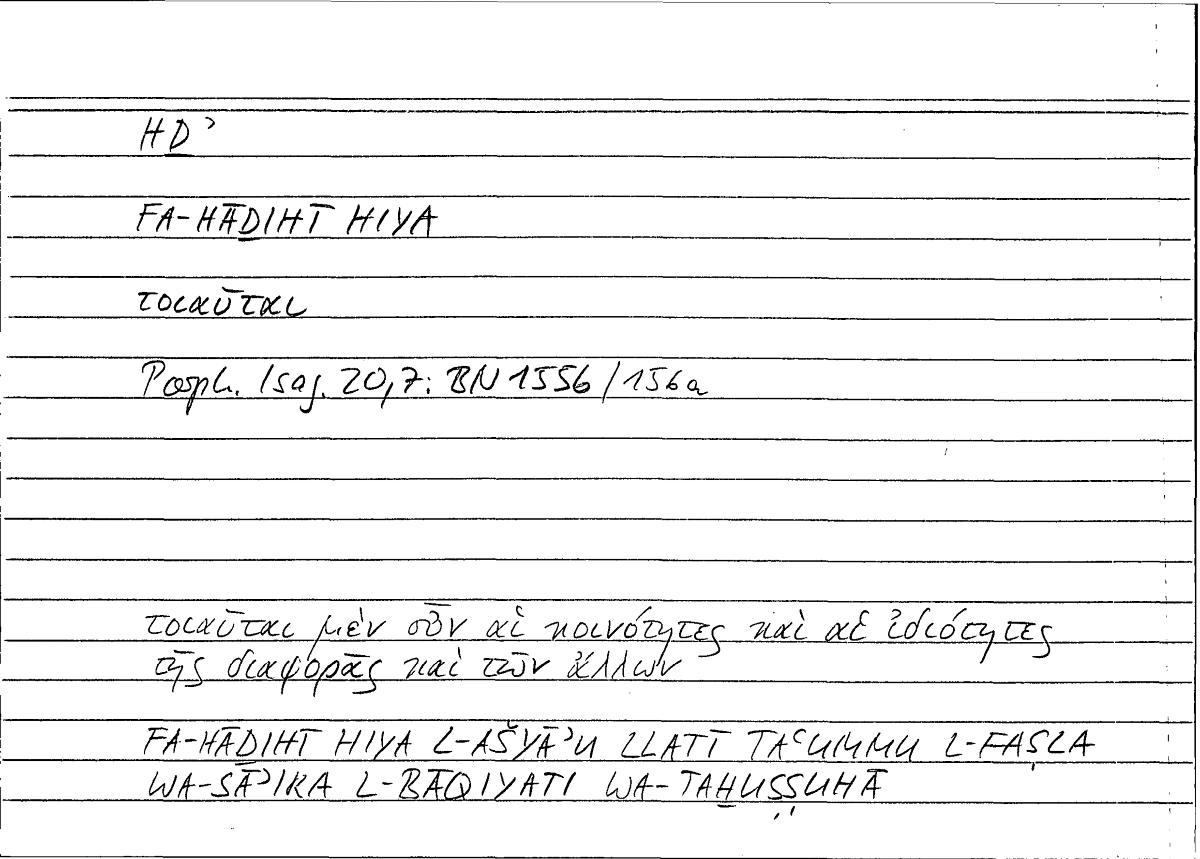 HḎʾ
FA-HĀḎIHĪ HIYA
τοιαῦται
Porph. Isag. 20,7: BN 1556/156a
τοιαῦται μὲν οὖν αἱ κοινότητες καὶ αἱ ἰδιότητες
τῆς διαφορᾶς καὶ τῶν ἄλλων
FA-HĀḎIHĪ HIYA L-AŠYĀʾU LLATĪ TAʿUMMU L-FAṢLA
WA-SĀʾIRA L-BĀQIYATI WA-TAḪUṢṢUHĀ